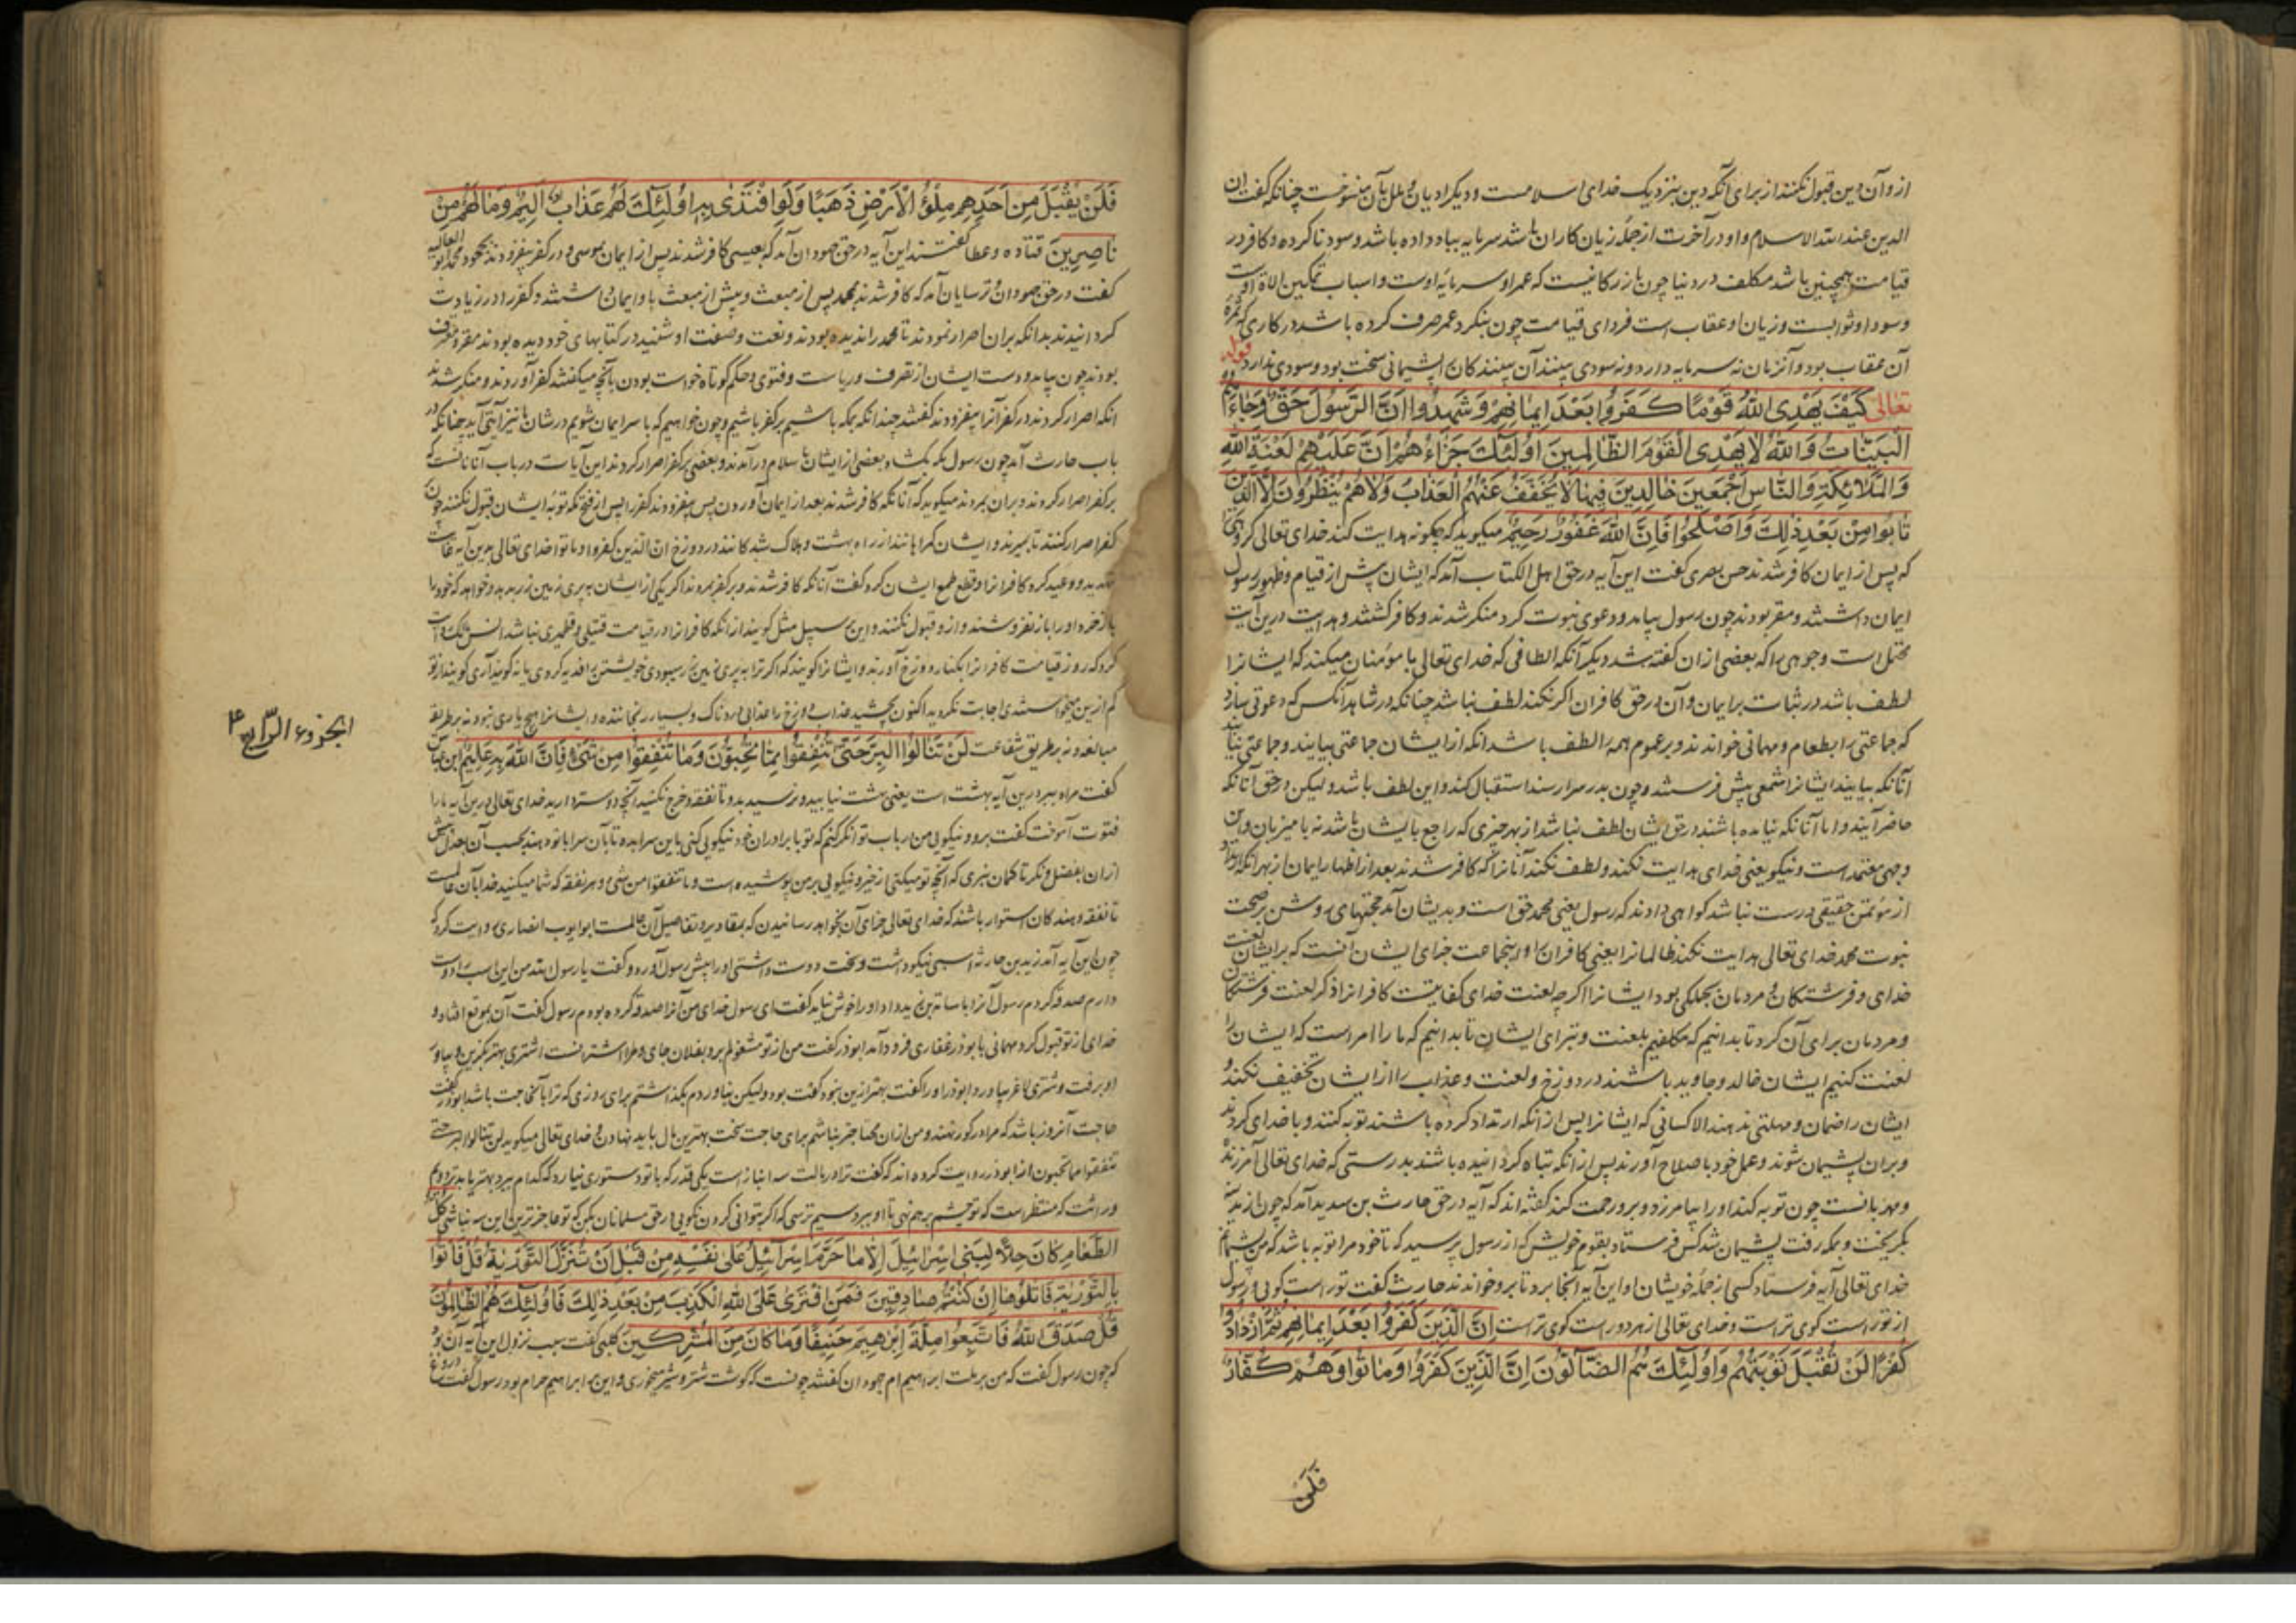 از و آن دین قبول نکنند از برای آنکه دین بنزدیک خدای اسلامست و دیگر ادیان و ملل بآن منسوخست چنانکه گفت ان
الدین عند الله الاسلام و او در آخرت از جمله زیان کاران باشد سرمایه بباد داده باشد و سود نا کرده و کافر در
قیامت همچنین باشد مکلف در دنیا چون بازرگانیست که عمر او سرمایه اوست و اسباب تمکین الاة اوست
و سود او ثوابست و زیان او عقاب است فردای قیامت چون بنگرد عمر صرف کرده باشد در کاری که ثمره
آن عقاب بود و آنزمان نه سرمایه دارد و نه سودی بینند آن بینند کان پشیمانی سخت بود و سودی ندارد قوله
تعالی كَيْفَ يَهْدِى اللهُ قَوْمًا كَفَرُوا بَعْدَ اِيمَانِهِمْ وَشَهِدُوا اَنَّ الرَّسُولَ حَقٌّ وَجَاءَهُمُ
الْبَيِّنَاتُ وَاللهُ لَا يَهْدِى الْقَوْمَ الظَّالِمِينَ اُولَئِكَ جَزَاءُهُمْ اَنَّ عَلَيْهِمْ لَعْنَةَ اللهِ
وَالْمَلَائِكَةِ وَالنَّاسِ اَجْمَعِينَ خَالِدِينَ فِيهَا لَا يُخَفَّفُ عَنْهُمُ الْعَذَابُ وَلَا هُمْ يُنْظَرُونَ اِلَّا الَّذِينَ
تَابُوا مِنْ بَعْدِ ذٰلِكَ وَاَصْلَحُوا فَاِنَّ اللهَ غَفُورٌ رَحِيمٌ میگوید که چگونه هدایت کند خدای تعالی گروهی
که پس از ایمان کافر شدند حسن بصری گفت این آیه در حق اهل الکتاب آمد که ایشان پیش از قیام و ظهور رسول
ایمان داشتند و مقر بودند چون رسول بیامد و دعوی نبوت کرد منکر شدند و کافر گشتند و هدایت درین آیت
محتمل است وجوهی را که بعضی از ان گفته شد دیگر آنکه الطافی که خدای تعالی با مؤمنان میکند که ایشانرا
لطف باشد در ثبات بر ایمان و آن در حق کافران اگر نکند لطف نباشد چنانکه در شاهد آنکس که دعوتی سازد
که جماعتی را بطعام و مهمانی خوانند و بر عموم همه را لطف باشد آنکه از ایشان جماعتی بیایند و جماعتی نیایند
آنانکه بیایند ایشانرا شمعی پیش فرستد و چون بدر سرا رسند استقبال کند و این لطف باشد و لیکن در حق آنانکه
حاضر آیند و اما آنانکه نیامده باشند در حق ایشان لطف نباشد از بهر چیزی که راجع با ایشان باشد نه با میزبان و این
وجهی معتمد است و نیکو یعنی خدای هدایت نکند و لطف نکند آنانرا که کافر شدند بعد از اظهار ایمان از بهر آنکه ارتداد
از مؤمن حقیقی درست نباشد گواهی دادند که رسول یعنی محمد حق است و بدیشان آمد حجتهای روشن بر صحت
نبوت محمد خدای تعالی هدایت نکند ظالمانرا یعنی کافران را و اینجماعت جزای ایشان آنست که بر ایشان لعنت
خدای و فرشتگان و مردمان بجملگی بود ایشانرا اگر چه لعنت خدای کفایتست کافرانرا ذکر لعنت فرشتگان
و مردمان برای آن کرد تا بدانیم که مکلفیم بلعنت و تبرای ایشان تا بدانیم که ما را امر است که ایشان را
لعنت کنیم ایشان خالد و جاوید باشند در دوزخ و لعنت و عذاب را از ایشان تخفیف نکند و
ایشان را ضمان و مهلتی ندهند الا کسانی که ایشانرا پس از آنکه ارتداد کرده باشند توبه کنند و با خدای گردند
و بران پشیمان شوند و عمل خود با صلاح آورند پس از آنکه تباه گردانیده باشند بدرستی که خدای تعالی آمرزنده
و مهربانست چون توبه کند او را بیامرزد و برو رحمت کند گفته اند که آیه در حق حارث بن سوید آمد که چون از مدینه
بگریخت و بمکه رفت پشیمان شد کس فرستاد بقوم خویش که از رسول بپرسید که تا خود مرا توبه باشد که من پشیمانم
خدای تعالی آیه فرستاد کسی از جمله خویشان او این آیه آنجا برد تا برو خواندند حارث گفت تو راست گویی و رسول
از تو راست گوی تر است و خدای تعالی از هر دو راست گوی تر است اِنَّ الَّذِينَ كَفَرُوا بَعْدَ اِيمَانِهِمْ ثُمَّ ازْدَادُوا
كُفْرًا لَنْ تُقْبَلَ تَوْبَتُهُمْ وَاُولَئِكَ هُمُ الضَّالُّونَ اِنَّ الَّذِينَ كَفَرُوا وَمَاتُوا وَهُمْ كُفَّارٌ
فَلَنْ
فَلَنْ يُقْبَلَ مِنْ اَحَدِهِمْ مِلْؤُ الْاَرْضِ ذَهَبًا وَلَوِ افْتَدٰى بِهِ اُولَئِكَ لَهُمْ عَذَابٌ اَلِيمٌ وَمَا لَهُمْ مِنْ
نَاصِرِينَ قتاده و عطا گفتند این آیه در حق جهودان آمد که بعیسی کافر شدند پس از ایمان بموسی و در کفر بیفزودند بجحود محمد ابو العالیه
گفت در حق جهودان و ترسایان آمد که کافر شدند بمحمد پس از مبعث و پیش از مبعث باو ایمان داشتند و کفر را در زیادت
گردانیدند بدانکه بران اصرار نمودند تا محمد را ندیده بودند و نعت و صفت او شنیده در کتابهای خود دیده بودند مقر و معترف
بودند چون بیامد و دست ایشان از تصرف و ریاست و فتوی و حکم کوتاه خواست بودن بآنچه میگفتند کفر آوردند و منکر شدند
آنکه اصرار کردند در کفر آنرا بیفزودند گفتند چندانکه بمکه باشیم بر کفر باشیم و چون خواهیم که با سر ایمان شویم در شان ما نیز آیتی آید چنانکه در
باب حارث آمد چون رسول مکه بگشاد بعضی از ایشان باسلام درآمدند و بعضی بر کفر اصرار کردند این آیات در باب آنانست که
بر کفر اصرار کردند و بران بمردند میگوید که آنانکه کافر شدند بعد از ایمان آوردن پس بیفزودند کفر را پس از فتح مکه توبه ایشان قبول نکنند چون
کفر اصرار کنند تا بمیرند و ایشان گمراهانند از راه بهشت و هلاک شدگانند در دوزخ ان الذین کفروا و ماتوا خدای تعالی بدین آیه غایت
تهدید و وعید کرد کافرانرا و قطع طمع ایشان کرد گفت آنانکه کافر شدند و بر کفر بمردند اگر یکی از ایشان به پری زمین زر بدهد و خواهد که خود را
باز خرد او را باز نفروشند و از و قبول نکنند و این بر سبیل مثل گویند از آنکه کافرانرا در قیامت فتیلی و قطمیری نباشد انس مالک روایت
کرد که روز قیامت کافرانرا بکنار دوزخ آورند و ایشانرا گویند که اگر ترا به پری زمین زر میبودی خویشتن را فدیه کردی یا نه گوید آری گویند از تو
کم ازین میخواستند اجابت نکردید اکنون بچشید عذاب دوزخ را عذابی دردناک و بسیار رنجاننده و ایشانرا هیچ یاری نبود نه بر طریق
مبالغه و نه بر طریق شفاعت لَنْ تَنَالُوا الْبِرَّ حَتّٰى تُنْفِقُوا مِمَّا تُحِبُّونَ وَمَا تُنْفِقُوا مِنْ شَىْءٍ فَاِنَّ اللهَ بِهِ عَلِيمٌ ابن عباس
گفت مراد ببر درین آیه بهشت است یعنی بهشت نیابید و نرسید بدو تا نفقه و خرج نکنید آنچه دوستر دارید خدای تعالی درین آیه ما را
فتوت آموخت گفت برو نیکویی من در باب تو آنگه کنم که تو با برادران خود نیکویی کنی
ازان بفضل و نگر تا گمان نبری که آنچه تو میکنی از خیر و نیکویی بر من پوشیده است و ما تنفقوا من شئ و هر نفقه که شما میکنید خدا بآن عالمست
تا نفقه دهندگان استوار باشند که خدای تعالی جزای آن بخواهد رسانیدن که بمقادیر و تفاصیل آن عالمست ابو ایوب انصاری روایت کرد که
چون این آیه آمد زید بن حارثه اسبی نیکو داشت و سخت دوست داشتی او را پیش رسول آورد و گفت یا رسول الله من این اسب را دوست
دارم صدقه کردم رسول آنرا باسامة بن زید داد او را خوش نیاید گفت ای رسول خدای من آنرا صدقه کرده بودم رسول گفت آن بموقع افتاد و
خدای از تو قبول کرد مهمانی با بوذر غفاری فرود آمد ابوذر گفت من از تو مشغولم برو بفلان جای و مرا اشترانست اشتری بهتر بگزین و بیاور
او برفت و شتری لاغر بیاورد ابوذر او را گفت بهتر ازین نبود گفت بود ولیکن نیاوردم بگذاشتم برای روزی که ترا بآن حاجت باشد ابوذر گفت
حاجت آنروز باشد که مرا در گور نهند و من ازان محتاجتر نباشم برای حاجت سخت بهترین مال باید نهادن و خدای تعالی میگوید لن تنالوا البر حتی
تنفقوا مما تحبون از ابوذر روایت کرده اند که گفت ترا در مالت سه انبازست یکی قدر که با تو دستوری نیارد که کدام ببرد بهتر یا بدتر دویم
وراثت که منتظر است که تو چشم بر هم نهی تا او ببرد سیم ترسی که اگر بتوانی کردن نکویی در حق مسلمانان بکن که تو عاجزترین این سه نباشی كُلُّ
الطَّعَامِ كَانَ حِلًّا لِبَنِى اِسْرَائِيلَ اِلَّا مَا حَرَّمَ اِسْرَائِيلُ عَلٰى نَفْسِهِ مِنْ قَبْلِ اَنْ تُنَزَّلَ التَّوْرٰيةُ قُلْ فَاْتُوا
بِالتَّوْرٰيةِ فَاتْلُوهَا اِنْ كُنْتُمْ صَادِقِينَ فَمَنِ افْتَرٰى عَلَى اللهِ الْكَذِبَ مِنْ بَعْدِ ذٰلِكَ فَاُولَئِكَ هُمُ الظَّالِمُونَ
قُلْ صَدَقَ اللهُ فَاتَّبِعُوا مِلَّةَ اِبْرٰهِيمَ حَنِيفًا وَمَا كَانَ مِنَ الْمُشْرِكِينَ کلبی گفت سبب نزول این آیه آن بود
که چون رسول گفت که من بر ملت ابراهیم ام جهودان گفتند چونست که گوشت شتر و شیر میخوری و این بر ابراهیم حرام بود رسول گفت دروغ
الجزوء الرابع ۴